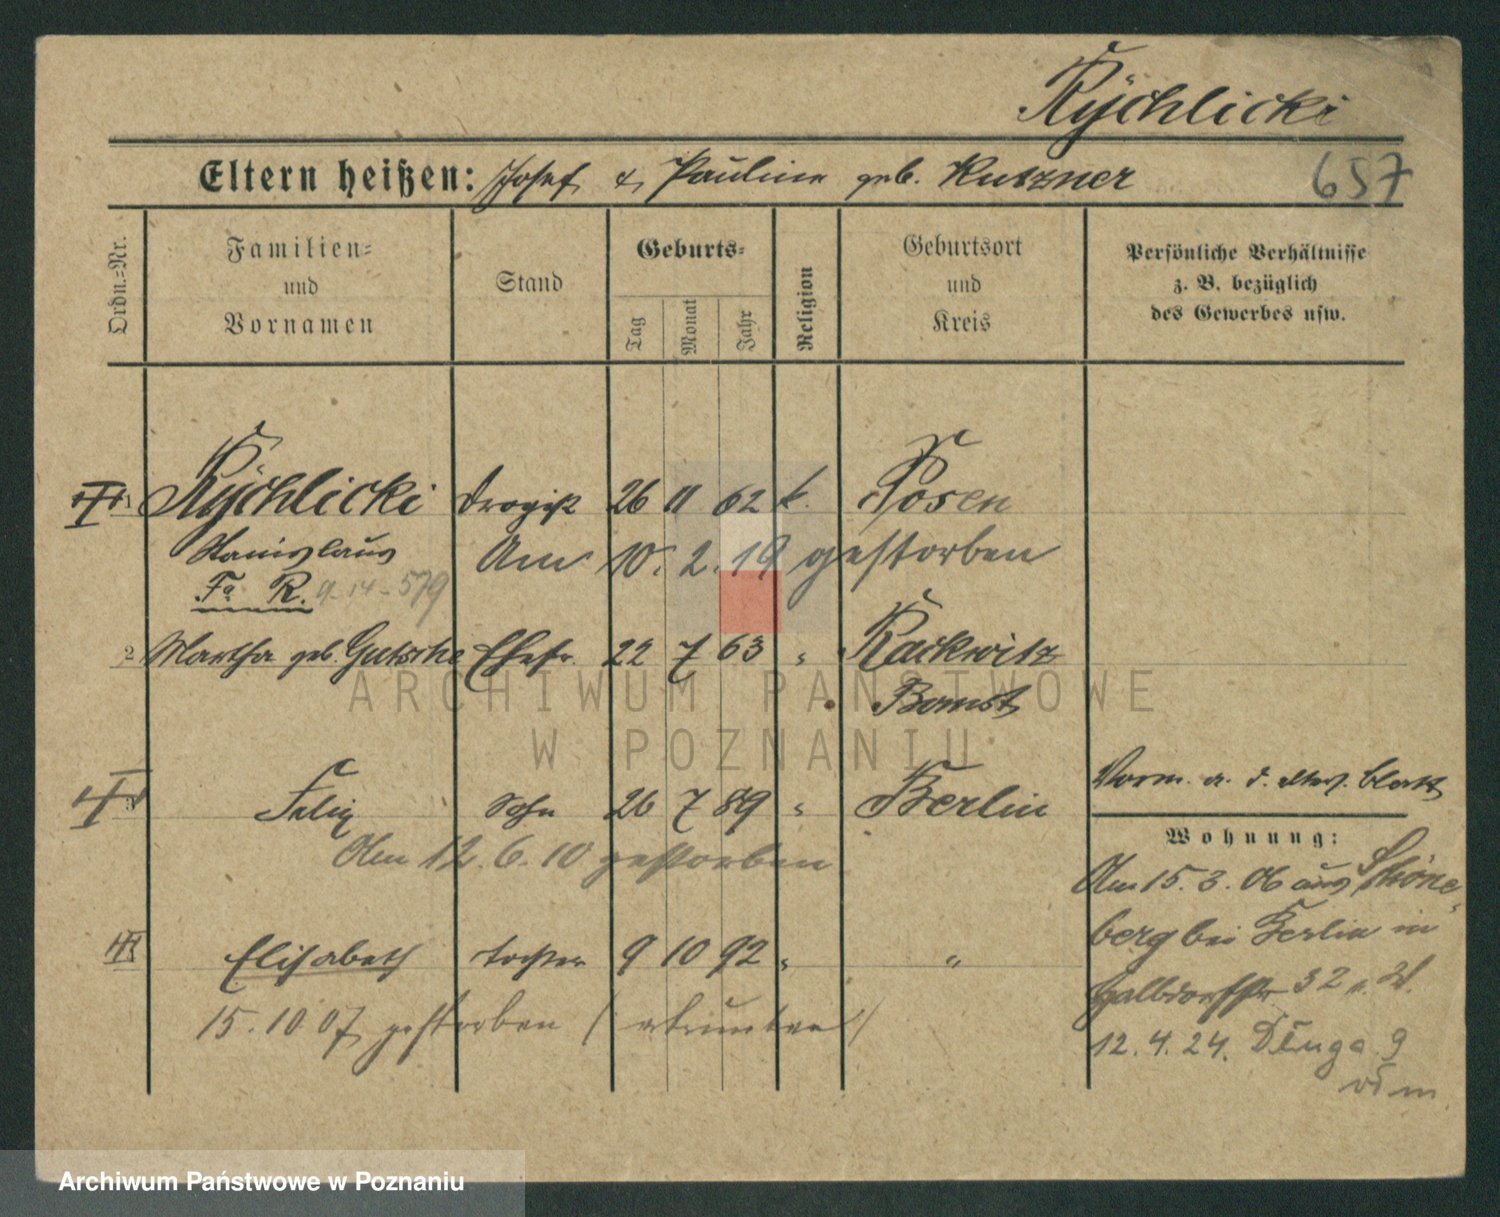 Rychlicki
Eltern heißen: Josef & Pauline geb. Kutzner
657
Ordn.-Nr.
Familien-
und
Vornamen
Stand
Geburts-
Tag
Monat
Jahr
Religion
Geburtsort
und
Kreis
Persönliche Verhältnisse
z. B. bezüglich
des Gewerbes usw.
Rychlicki Drogist 26 11 62 k. Posen
Stanislaus Am 10. 2. 19 gestorben
Fa R. 9-14-579
2 Martha geb. Gutsche Ehefr. 22 7 63 " Rackwitz
Bomst
3 Felix Sohn 26 7 89 " Berlin
Am 12. 6. 10 gestorben
Elisabeth Tochter 9 10 92 " "
15.10.07 gestorben (ertrunken)
Vorm. a. d. elterl. Blatt
Wohnung:
Am 15. 3. 06 aus Schöne-
berg bei Berlin in
Halbdorfstr 32
12. 4. 24. Długa 9
ARCHIWUM PAŃSTWOWE
W POZNANIU
Archiwum Państwowe w Poznaniu